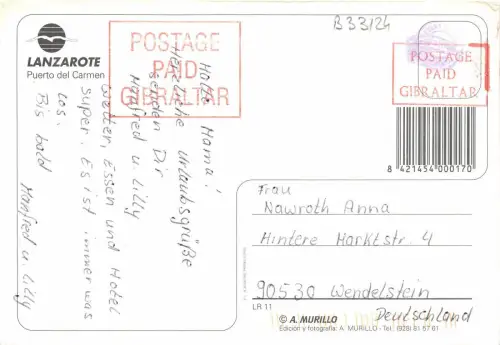 B33124
LANZAROTE
Puerto del Carmen
POSTAGE
PAID
GIBRALTAR
POSTAGE
PAID
GIBRALTAR
8 421454 000170
Hallo Mama!
Herzliche Urlaubsgrüße
senden Dir
Manfred u. Lilly
Wetter, Essen und Hotel
super. Es ist immer was
los.
Bis bald
Manfred u. Lilly
Frau
Nawroth Anna
Hintere Marktstr. 4
90530 Wendelstein
Deutschland
LR 11
© A. MURILLO
Edición y fotografía: A. MURILLO - Tel: (928) 81 57 61